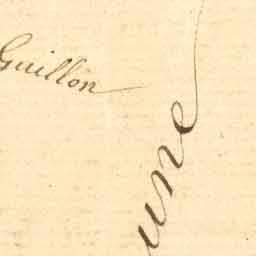 Guillon
une